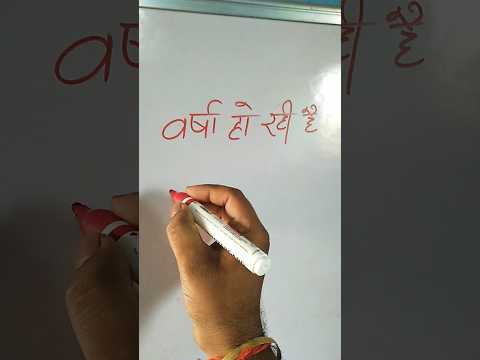 वर्षा हो रही है